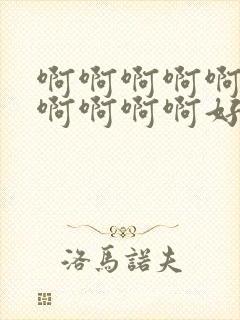 啊啊啊啊啊
啊啊啊啊好
洛馬諾夫